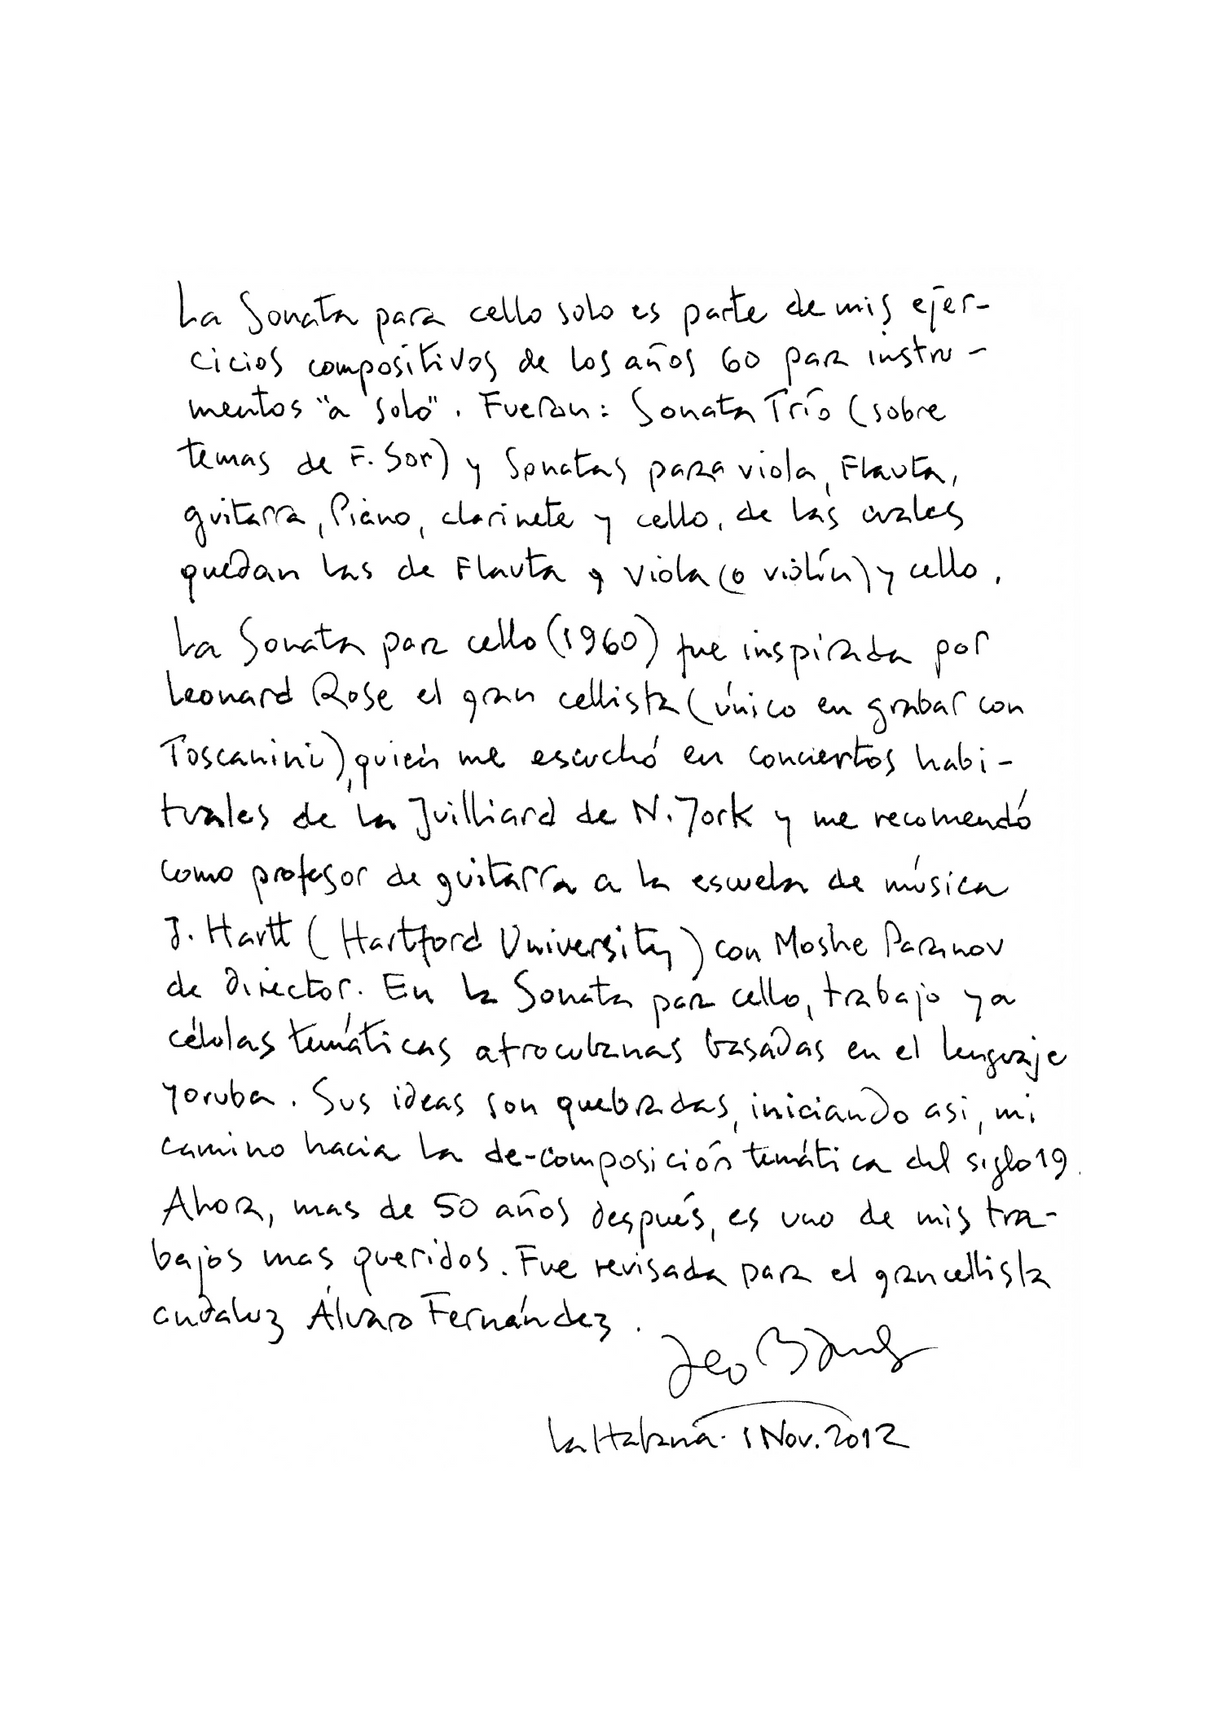 La Sonata para cello solo es parte de mis ejer-
cicios compositivos de los años 60 para instru-
mentos "a solo". Fueron: Sonata Trío (sobre
temas de F. Sor) y Sonatas para viola, Flauta,
guitarra, Piano, clarinete y cello, de las cuales
quedan las de Flauta y viola (o violín) y cello.
La Sonata para cello (1960) fue inspirada por
Leonard Rose el gran cellista (único en grabar con
Toscanini), quién me escuchó en conciertos habi-
tuales de la Juilliard de N. York y me recomendó
como profesor de guitarra a la escuela de música
J. Hartt (Hartford University) con Moshe Paranov
de director. En la Sonata para cello, trabajo ya
células temáticas afrocubanas basadas en el lenguaje
yoruba. Sus ideas son quebradas, iniciando asi, mi
camino hacia la de-composición temática del siglo 19.
Ahora, mas de 50 años después, es uno de mis tra-
bajos mas queridos. Fue revisada para el gran cellista
andaluz Álvaro Fernández.
Leo Brouwer
La Habana. 1 Nov. 2012